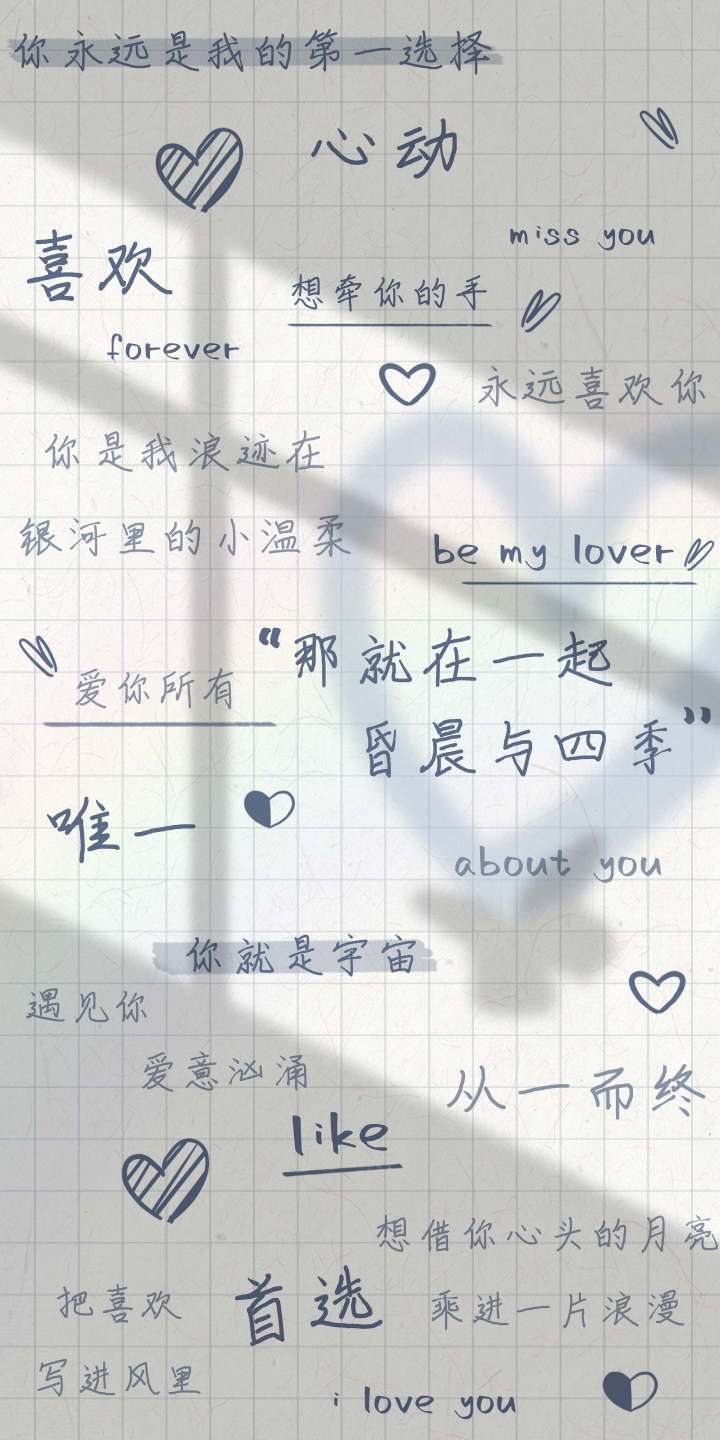 你永远是我的第一选择
心动
miss you
喜欢
想牵你的手
forever
永远喜欢你
你是我浪迹在
银河里的小温柔
be my lover
“那就在一起
昏晨与四季”
爱你所有
唯一
about you
你就是宇宙
遇见你
爱意汹涌
从一而终
like
想借你心头的月亮
乘进一片浪漫
首选
把喜欢
写进风里
i love you